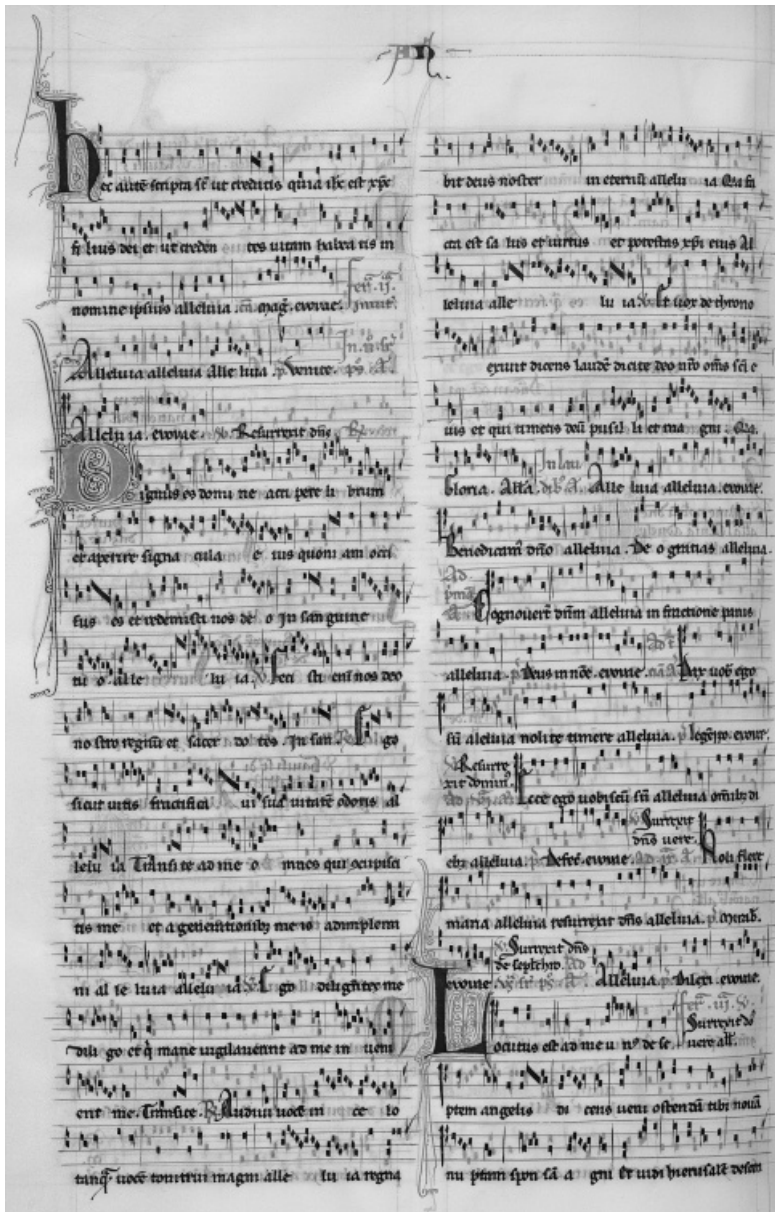 Hec autē scripta sīt ut credatis quia ihc est xpc
fi lius dei et ut creden tes uitam habea tis in
nomine ipsius alleluia. mag. evovae. ferī. ij.
Alleluia alleluia Alle luia p̄ venite. ps. A.
Allelu ia. evovae. Resurrexit dn̄s
Dignus es domi ne acci pere li brum
et aperire signa cula e ius quoni am occi
sus es et redemisti nos de o in san guine
tu o alle lu ia. V. Feci sti enī nos deo
no stro regnū et sacer do tes. In san. Ego
sicut uitis fructifica ui sua uitatē odoris al
lelu ia Transi te ad me o mnes qui ocupisci
tis me et a generationibꝫ me is adimplemi
ni al le luia allelu ia V. Ego diligentes me
dili go et q̄ mane uigilauerint ad me in ueni
ent me. Transite. Audiui uocē in ce lo
tanqᷓ uocē tonitrui magni alle lu ia regna
bit deus noster in eternū allelu ia Qa fa
cta est sa lus et uirtus et potestas xpi eius Al
leluia alle lu ia V. Et uox de throno
exiuit dicens laudē dicite deo nr̄o om̄s sc̄i e
ius et qui timetis deū pusil li et ma gni. Qa.
Gloria. All'a. In lau dibꝫ A. Alle luia alleluia. evovae.
Benedicam dn̄o alleluia. De o gratias alleluia.
Ad
p̄mā
A. Cognouerē dn̄m alleluia in fractione panis
alleluia. p̄ Deus in noīe. evovae. Ad t̄ Pax uob ego
sū aleluia nolite timere alleluia. p̄ lege. evovae.
V. Resurre
xit dominꝰ. Ecce ego uobiscū sū alleluia omībꝫ di
V. Surrexit
dn̄s uere.
ebꝫ alleluia. p̄ Defec. evovae. Noli flere
maria alleluia resurrexit dn̄s alleluia. p̄ mirab.
V. Surrexit dn̄s
de sepulchro. Ad
evovae Alleluia. p̄ Dilexi. evovae.
ferī. iij. V.
Surrexit dn̄s
Locutus est ad me u nꝰ de se uere all'.
ptem angelis di cens ueni ostendā tibi nouā
nu ptam spon sā a gni Et uidi hierusalē descen